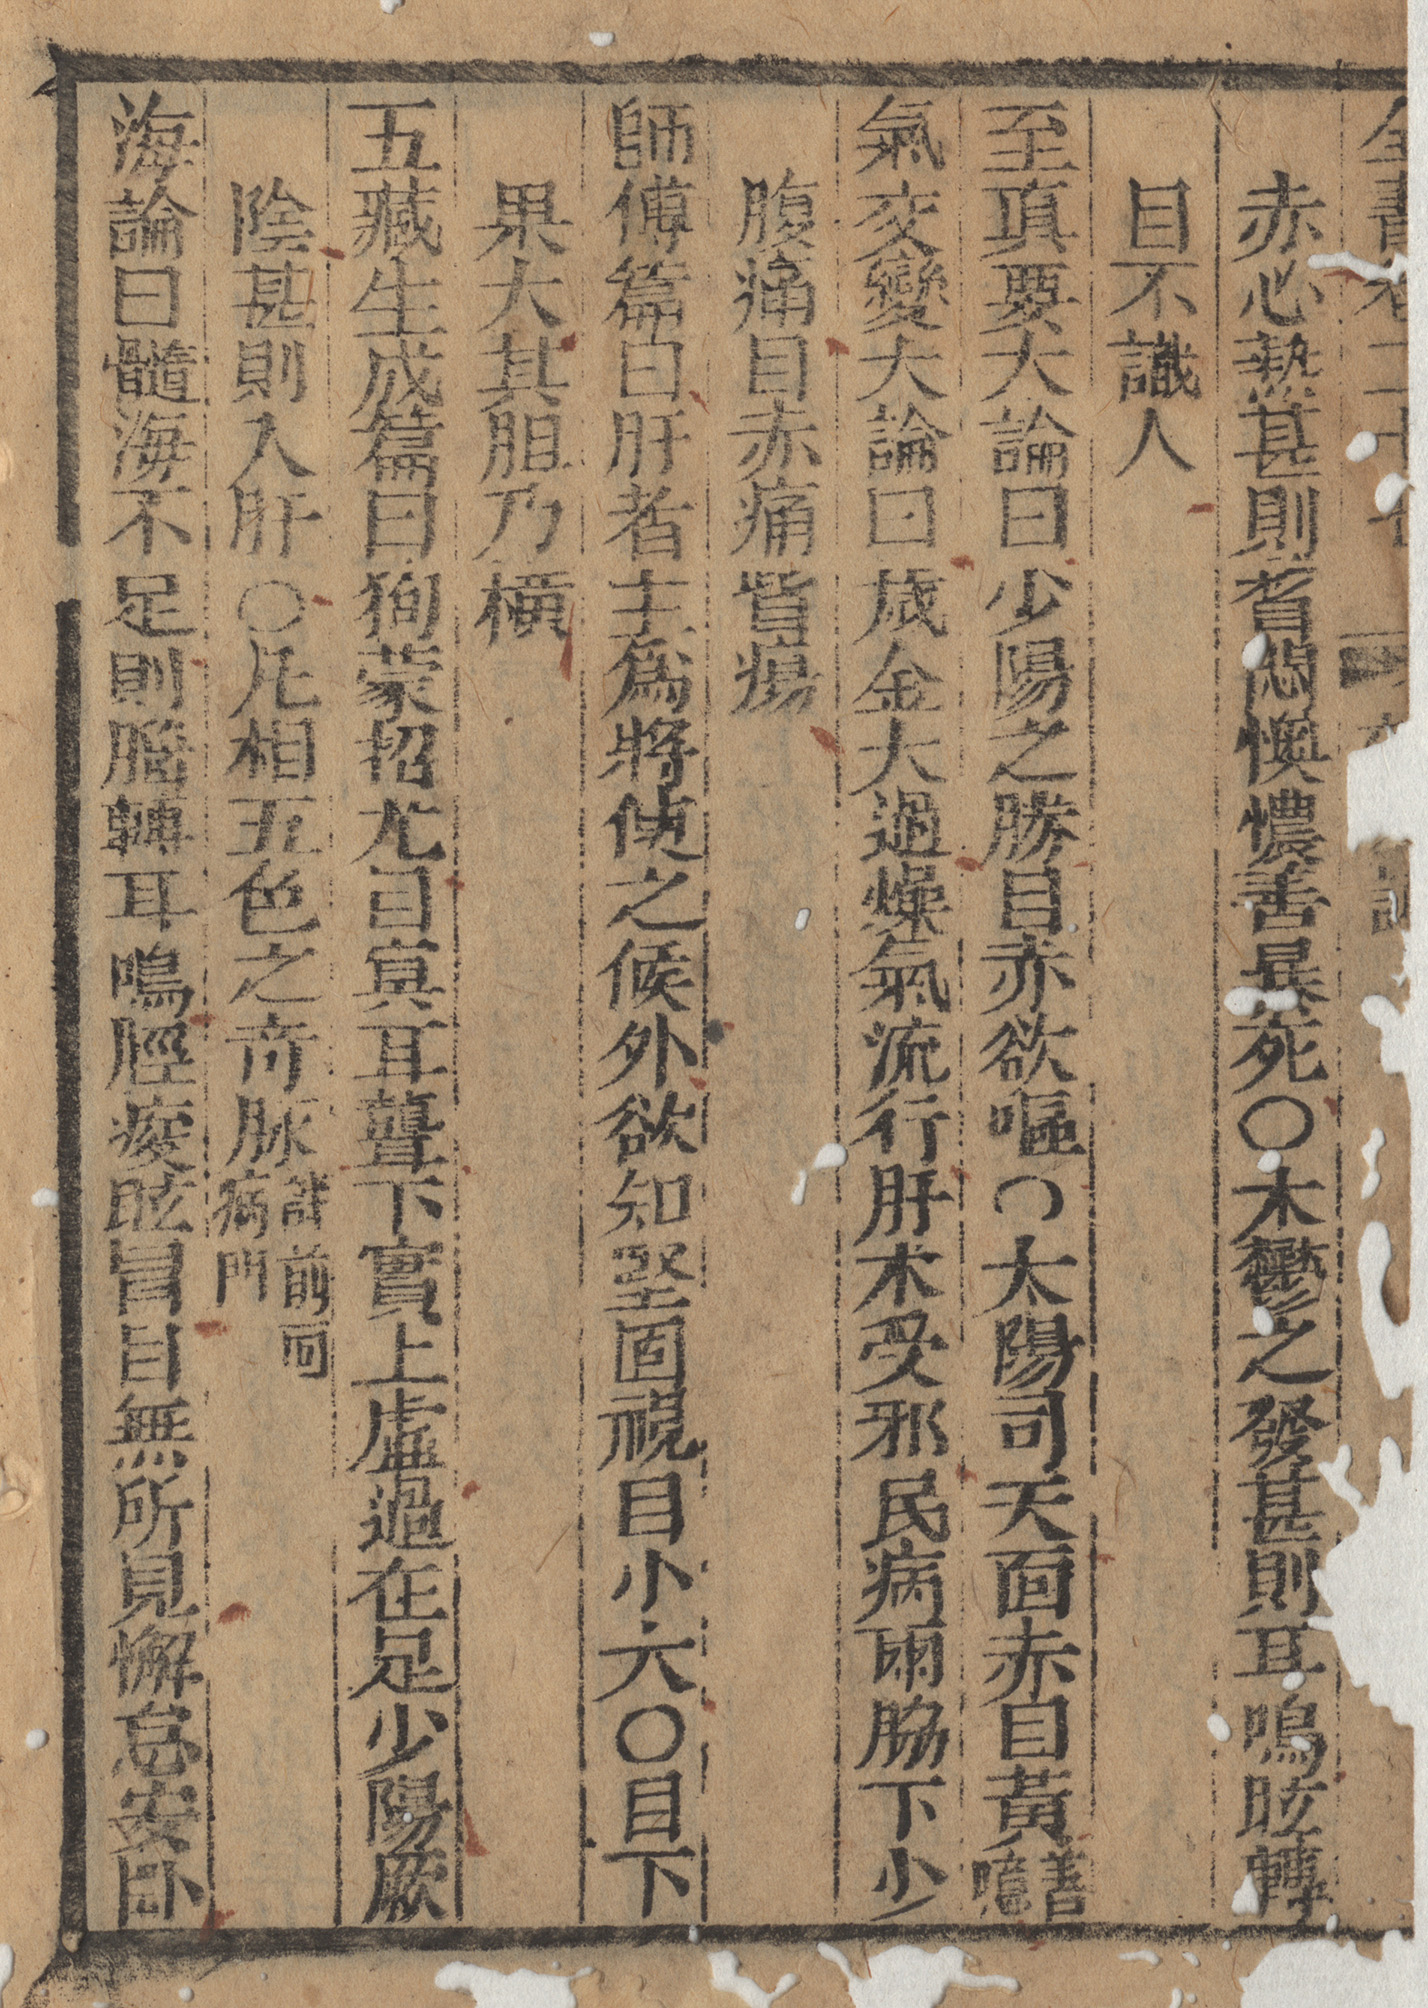 全書卷二十七
赤心熱甚則瞀悶懊憹善暴死〇木鬱之發甚則耳鳴眩轉
目不識人
至真要大論曰少陽之勝目赤欲嘔〇太陽司天面赤目黃善噫
氣交變大論曰歲金大過燥氣流行肝木受邪民病兩脇下少
腹痛目赤痛眥瘍
師傳篇曰肝者主爲將使之候外欲知堅固視目小大〇目下
果大其胆乃橫
五藏生成篇曰狥蒙招尤目㝠耳聾下實上虛過在足少陽厥
陰甚則入肝〇凡相五色之奇脉詳前面病門
海論曰髓海不足則腦轉耳鳴脛痠眩冒目無所見懈怠安卧